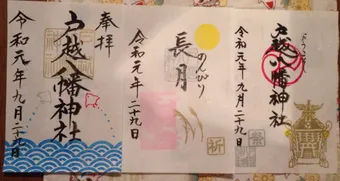 ようこそ
戸越八幡神社
令和元年九月二十九日
祭
長月
のんびり
令和元年九月二十九日
祈
奉拝
戸越八幡神社
令和元年九月二十九日